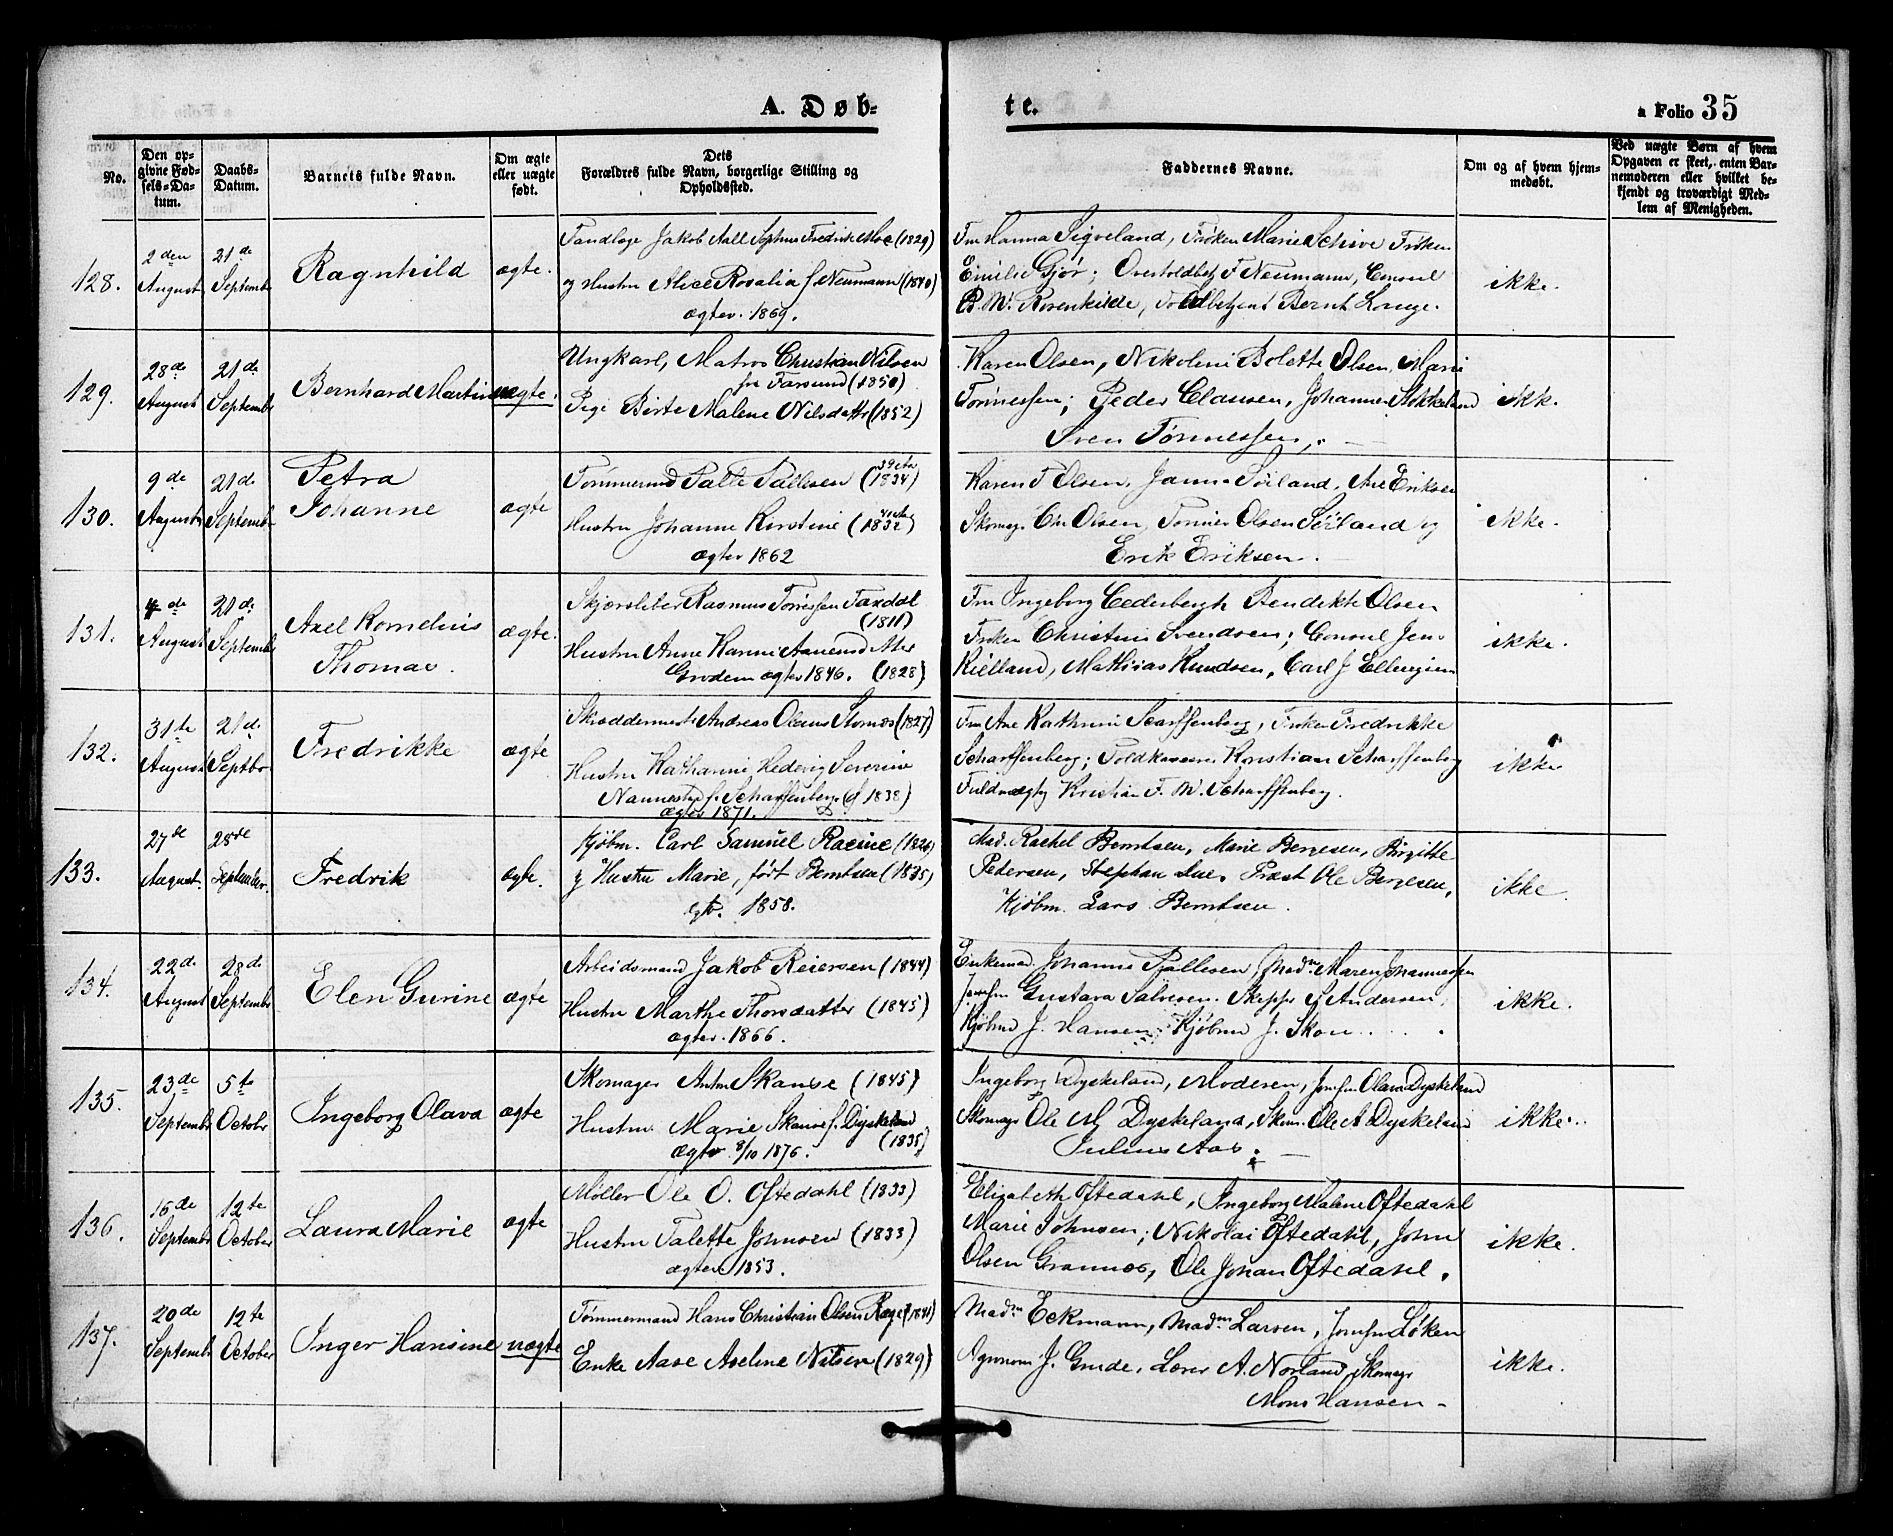 A. Døb-
te.
a Folio 35
No.
Den op-
givne Fød-
sels-Da-
tum.
Daabs-
Datum.
Barnets fulde Navn.
Om ægte
eller uægte
født.
Dets
Forældres fulde Navn, borgerlige Stilling og
Opholdssted.
Faddernes Navne.
Om og af hvem hjem-
medøbt.
Ved uægte Børn af hvem
Opgaven er skeet, enten Bar-
nemoderen eller hvilket be-
kjendt og troværdigt Med-
lem af Menigheden.
128.
2den
August
21de
Septemb
Ragnhild
ægte.
Tandlæge Jakob Aall Sophus Fredrik Moe (1829)
og Hustru Alice Rosalia f. Neumann (1840)
ægtev. 1869.
Fru Hanna Sigveland, Frøken Marie Schive Frøken
Emilie Gjør; Overtoldbetj F Neumann, Consul
P. M. Rosenkilde, Toldbetjent Bernt Lange.
ikke.
129.
28de
August
21de
Septembr
Bernhard Martin
uægte.
Ungkarl, Matros Christian Nilsen
fra Farsund (1850)
Pige Birte Malene Nilsdattr (1852)
Karen Olsen, Nikoline Bolette Olsen, Marie
Tønnessen; Peder Clausen, Johannes Stokkeland
Sven Tønnessen,
ikk.
130.
9de
August
21de
Septembr
Petra
Johanne
ægte
Tømmermd Palle Pallesen (1834)
Hustru Johanne Kirstine (1832)
ægtev 1862
Karen T Olsen, Janna Sørland, Ane Eriksen
Skomagr Chr Olsen, Tønnes Olsen Sørland og
Erik Eriksen.
ikke.
131.
4de
August
21de
Septembr
Axel Kornelius
Thomas.
ægte.
Skjærsliber Rasmus Tørresen Taxdal
(1811)
Hustru Anne Karine Aanensd Ater
Grødem ægtev 1846. (1828)
Fru Ingeborg Cederbergh Bendikte Olsen
Frøken Christine Svendsen; Consul Jens
Kielland, Mathias Knudsen, Carl J Ellingsen
ikke.
132.
31te
August
21de
Septbr
Fredrikke
ægte
Skræddermestr Andreas Olaus Stornæs (1827)
Hustru Katharine Hedevig Severine
Nannestad f. Scharffenberg (f 1838)
ægtev 1871.
Fru Ane Kathrine Scarffenberg, Frøken Fredrikke
Scharffenberg; Toldkasserer Kristian Scharffenberg
Fuldmægtig Kristian F. W. Scharffenberg.
ikke
133.
27de
August.
28de
September.
Fredrik
ægte.
Kjøbm. Carl Samuel Racine (1826)
g Hustru Marie, født Berntsen (1835)
egtv. 1858.
Mad. Rachel Berntsen, Marie Bergesen, Birgitte
Pedersen, Stephan Lues, Præst Ole Bergesen,
Kjøbm. Lars Berntsen.
ikke.
134.
22de
August
28de
Septembr
Elen Gurine
ægte
Arbeidsmand Jakob Reiersen (1844)
Hustru Marthe Thorsdatter (1845)
ægtev. 1866.
Enkemad. Johanna Pallesen, Madm Maren Johannessen
Jomfru Gustava Salvesen. Skippr G Andersen,
Kjøbmd J. Hansen Kjøbmd J. Skou....
ikke.
135.
23de
Septembr
5te
Octobr
Ingeborg Olava
ægte
Skomager Anton Skanse (1845)
Hustru Marie Skanse f. Dyskeland
(1835)
ægtev 8/10 1876.
Ingeborg Dyskeland, Moderen, Jomfru Olava Dyskeland
Skomagr Ole M Dyskeland, Skom. Ole A Dyskeland
Julius Aas.
ikke..
136.
16de
Septembr
12te
October
Laura Marie
ægte
Møller Ole O. Oftedahl (1833)
Hustru Talette Johnsen (1833)
ægtev 1853.
Elizabeth Oftedahl, Ingeborg Malene Oftedahl
Marie Johnsen; Nikolai Oftedahl, John
Olsen Grannæs, Ole Johan Oftedahl.
ikke.
137.
20de
Septembr
12te
October
Inger Hansine
uægte
Tømmermand Hans Christian Olsen Rage (1841)
Enke Aase Axeline Nilsen (1829)
Madm Eckmann, Madm Larsen, Jomfru Løken
Agronom J. Gude, Lærer A. Norland, Skomagr
Mons Hansen -
ikke.